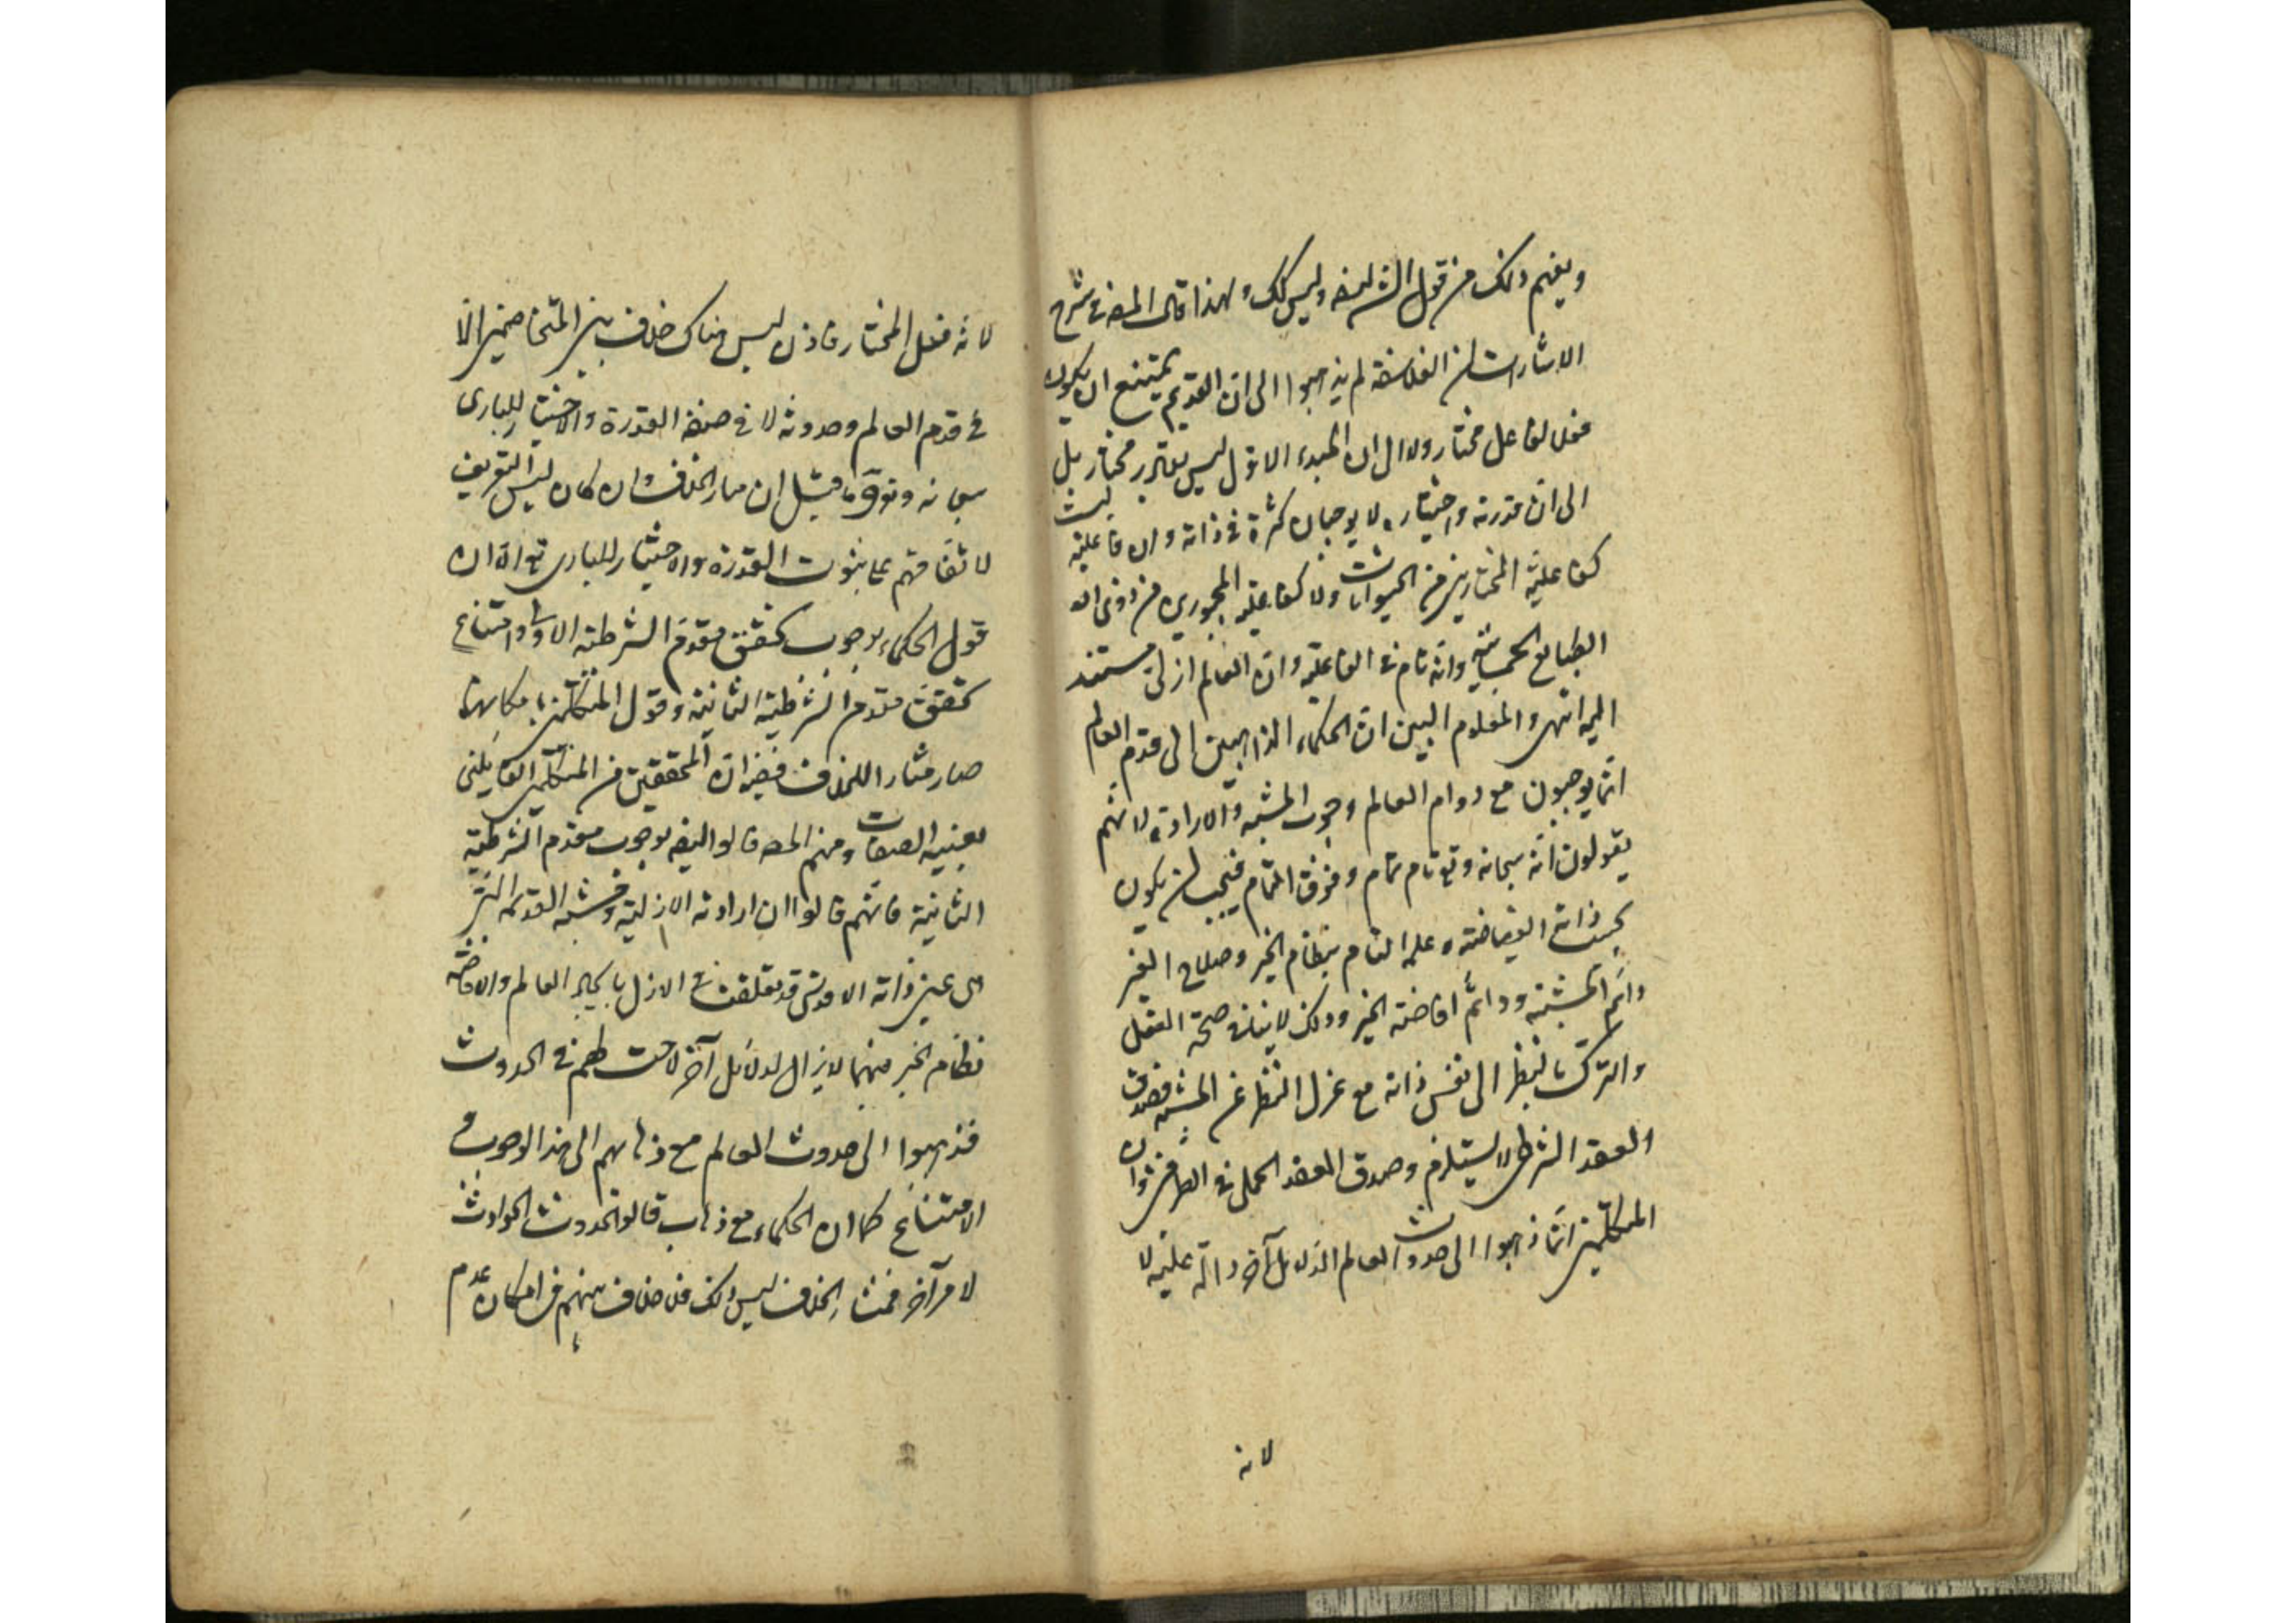 ويفهم ذلك من قول الش ايضه وليس كك ولهذا قال المصه في شرح
الاشارات ان الفلاسفة لم يذهبوا الى ان القديم يمتنع ان يكون
فعلا لفاعل مختار ولا الى ان المبدء الاول ليس بقادر مختار بل
الى ان قدرته واختياره لا يوجبان كثرة في ذاته وان فاعليته ليست
كفاعلية المختارين من الحيوانات ولا كفاعلية المجبورين من ذوى
الطبايع الجسمانية وانه تام في الفاعلية وان العالم ازلى مستند
اليه انتهى والمعلوم البين ان الحكماء الذاهبين الى قدم العالم
انما يوجبون مع دوام العالم وجوب المشية والارادة لانهم
يقولون انه سبحانه وتع تام تمام وفوق التمام فيجب ان يكون
بحسب ذاته الفياضة وعلمه التام بنظام الخير وصلاح الغير
دائم المشية ودائم افاضة الخير وذلك لا ينافى صحة الفعل
والترك بالنظر الى نفس ذاته مع عزل النظر عن المشية فصدق
العقد الشرطى لا يستلزم وصدق العقد الحملى في الطرفين وان
المتكلمين انما ذهبوا الى حدوث العالم لدلايل آخر دالة عليه لا
لانه
لانه فعل المختار فاذن ليس هناك خلاف بين المتخاصمين الا
في قدم العالم وحدوثه لا في صفة القدرة والاختيار للبارى
سبحانه وتع وما قيل ان مدار الخلاف وان كان ليس التعريف
لاتفاقهم على ثبوت القدرة والاختيار للبارى تع الا ان
قول الحكماء بوجوب تحقق مقدم الشرطية الاولى وامتناع
تحقق مقدم الشرطية الثانية وقول المتكلمين بامكانهما
صار مثار اللخلاف ففيه ان المحققين من المتكلمين القايلين
بعينية الصفات ومنهم المصه قالوا ايضه بوجوب مقدم الشرطية
الثانية فانهم قالوا ان ارادته الازلية ومشيته القديمة التى
هى عين ذاته الاقدس قد تعلقت في الازل بايجاد العالم والافاضه
نظام الخير فيما لا يزال لدلائل آخر لاحت لهم في الحدوث
فذهبوا الى حدوث العالم مع ذهابهم الى هذا الوجوب و
الامتناع كما ان الحكماء مع ذهاب قالوا بحدوث الحوادث
لامر آخر فمثار الخلاف ليس ذلك فلا خلاف بينهم في امكان عدم